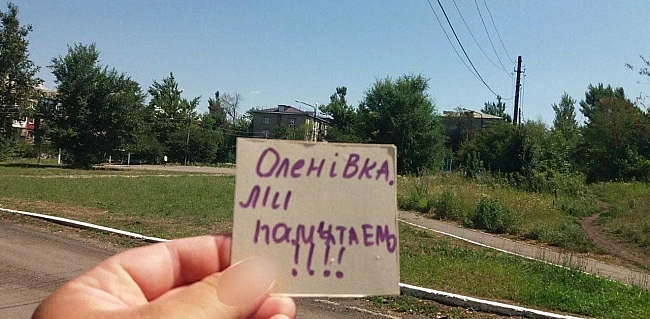 Оленівка.
Ми
памятаємо
!!!!